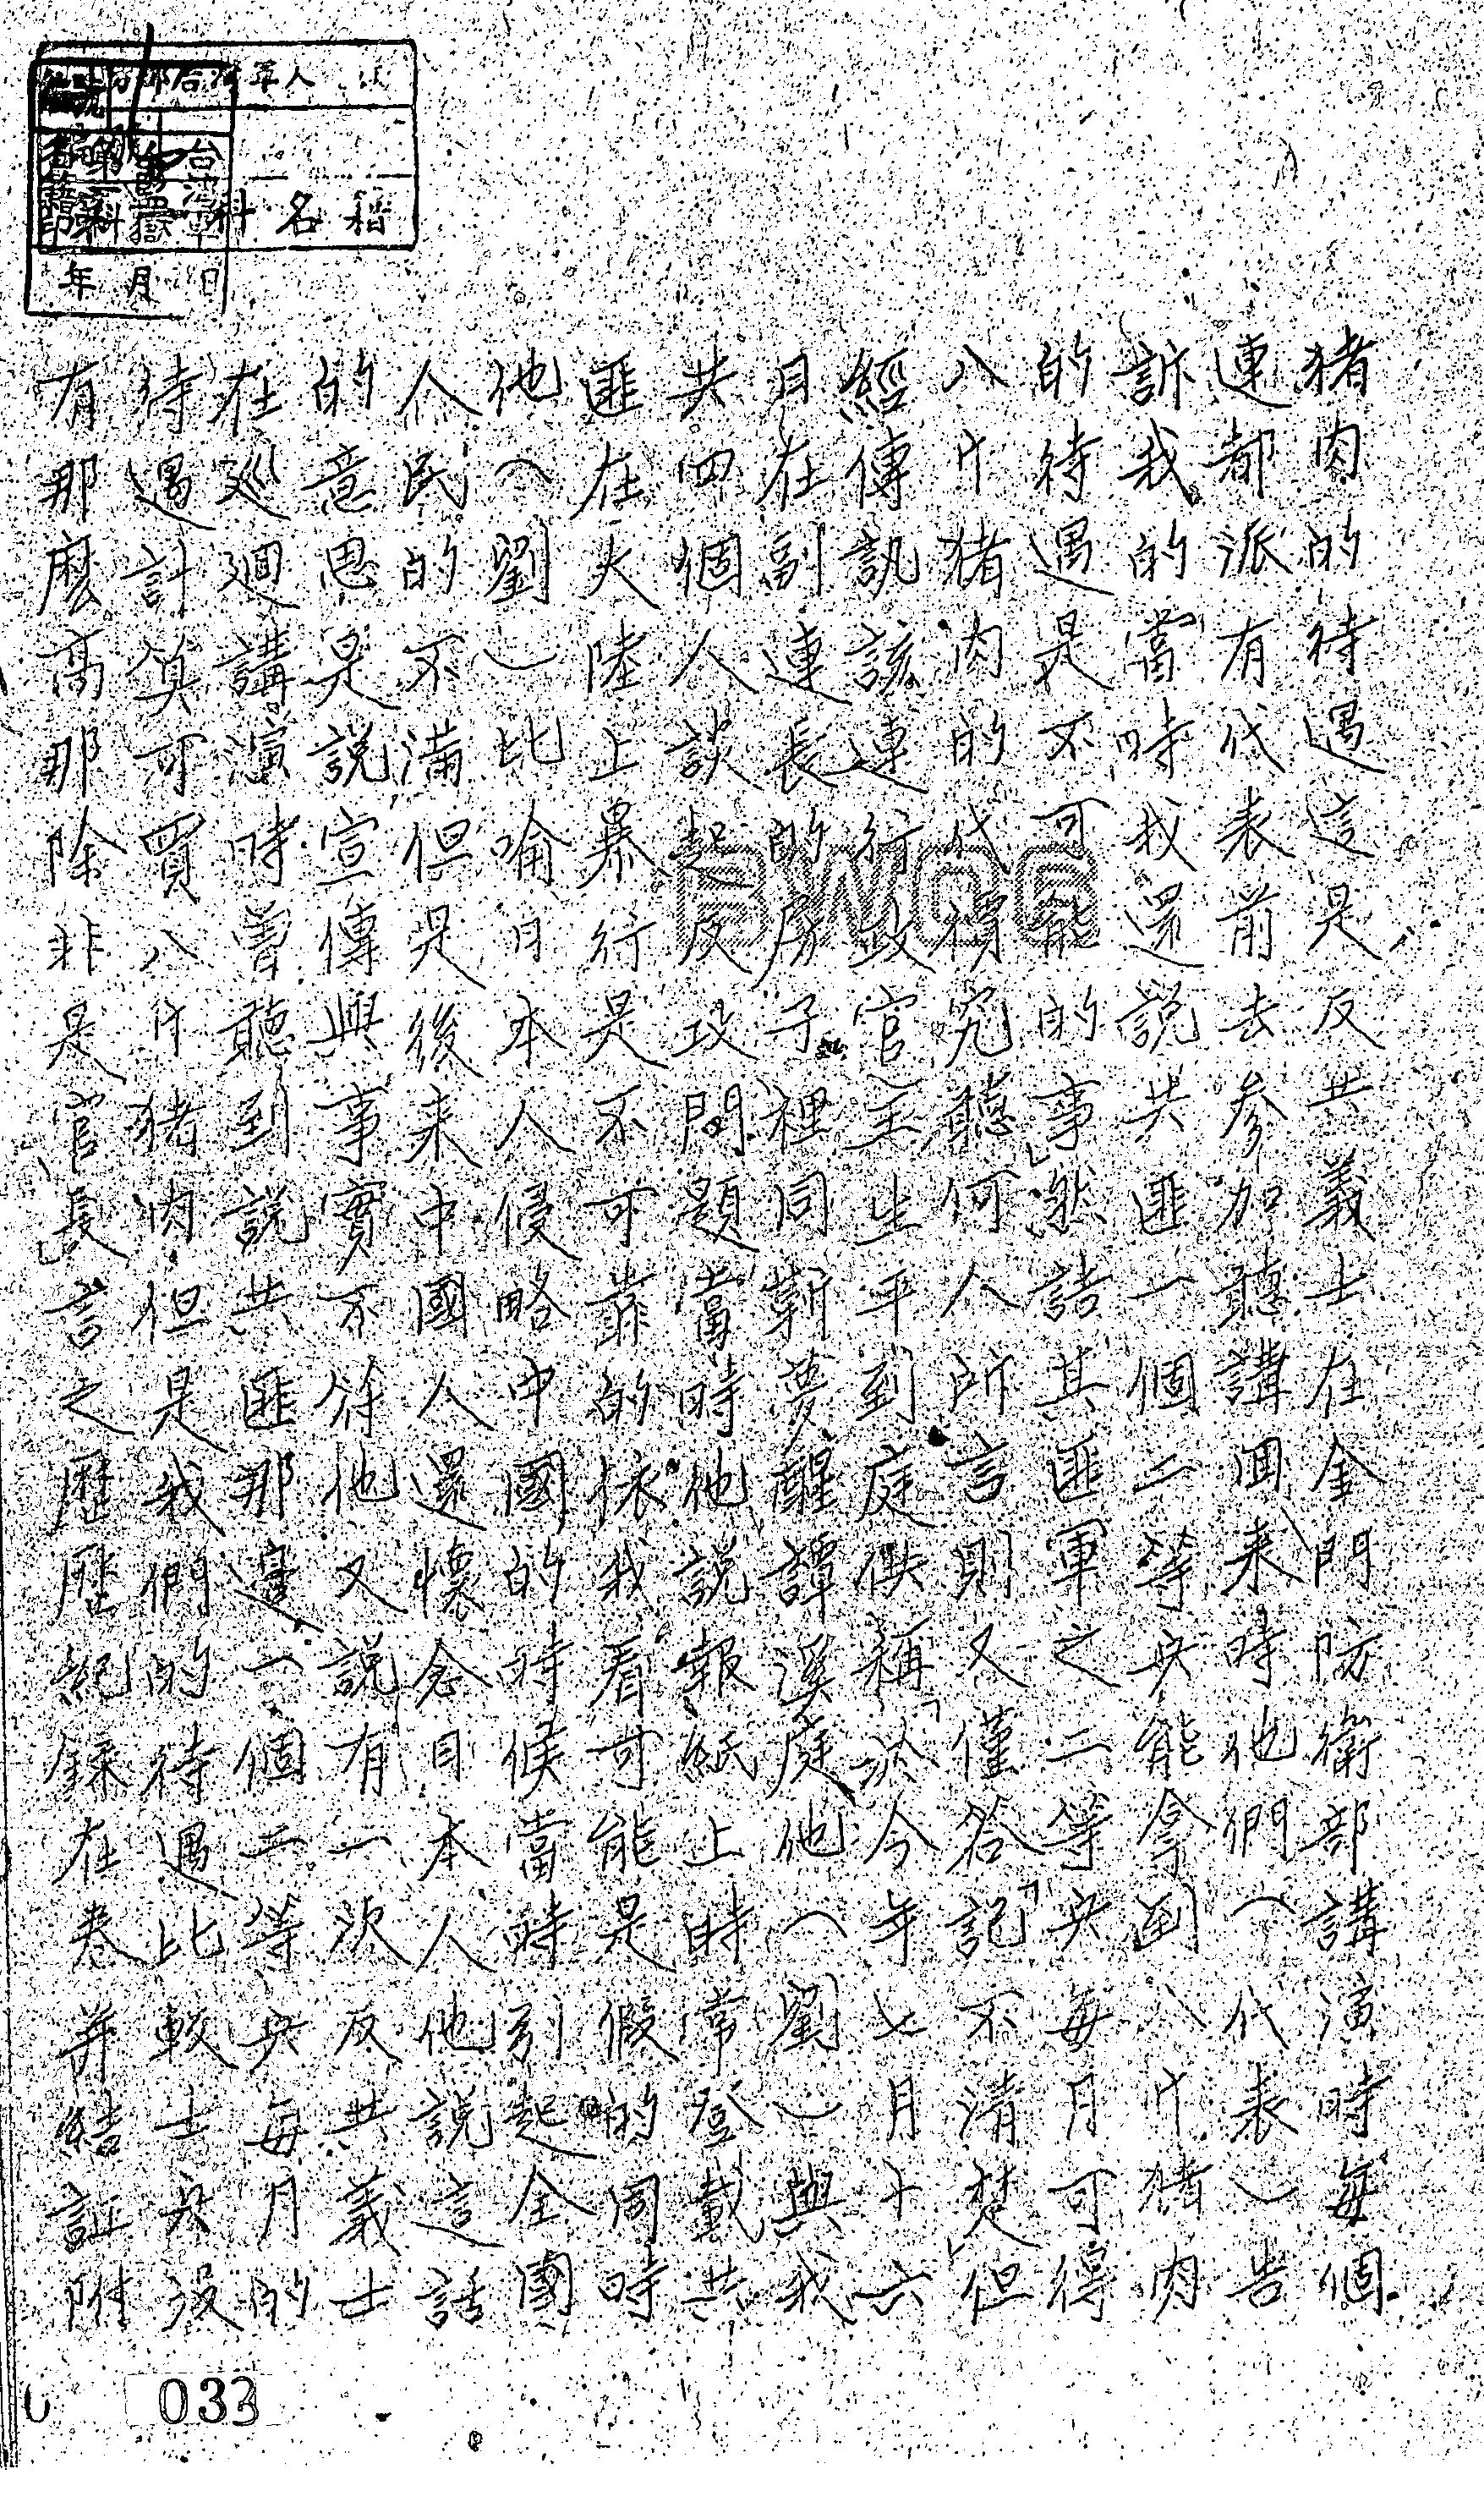 猪肉的待遇這是反共義士在金門防衛部講演時每個
連都派有代表前去參加聽講回來時他們（代表）告
訴我的當時我還說共匪一個二等兵能拿到八斤猪肉
的待遇是不可能的事」然詰其匪軍之二等兵每月可得
八斤猪肉的代得究聽何人所言則又僅答記不清楚」但
經傳訊該連行政官王生平到庭供稱「於今年七月十六
日在副連長的房子裡同靳夢醒譚溪庭他（劉）與我
共四個人談起反攻問題當時他說報紙上時常登載共
匪在大陸上暴行是不可靠的依我看可能是假的同時
他（劉）比喻日本人侵略中國的時候當時引起全國
人民的不滿但是後來中國人還懷念日本人他說這話
的意思是說宣傳與事實不符他又說有一次反共義士
在巡迴講演時曾聽到說共匪那邊一個二等兵每月的
待遇計算可買八斤猪肉但是我們的待遇比較士兵沒
有那麼高那除非是官長」言之歷歷紀錄在卷并結証附
年月日
科名稱
033